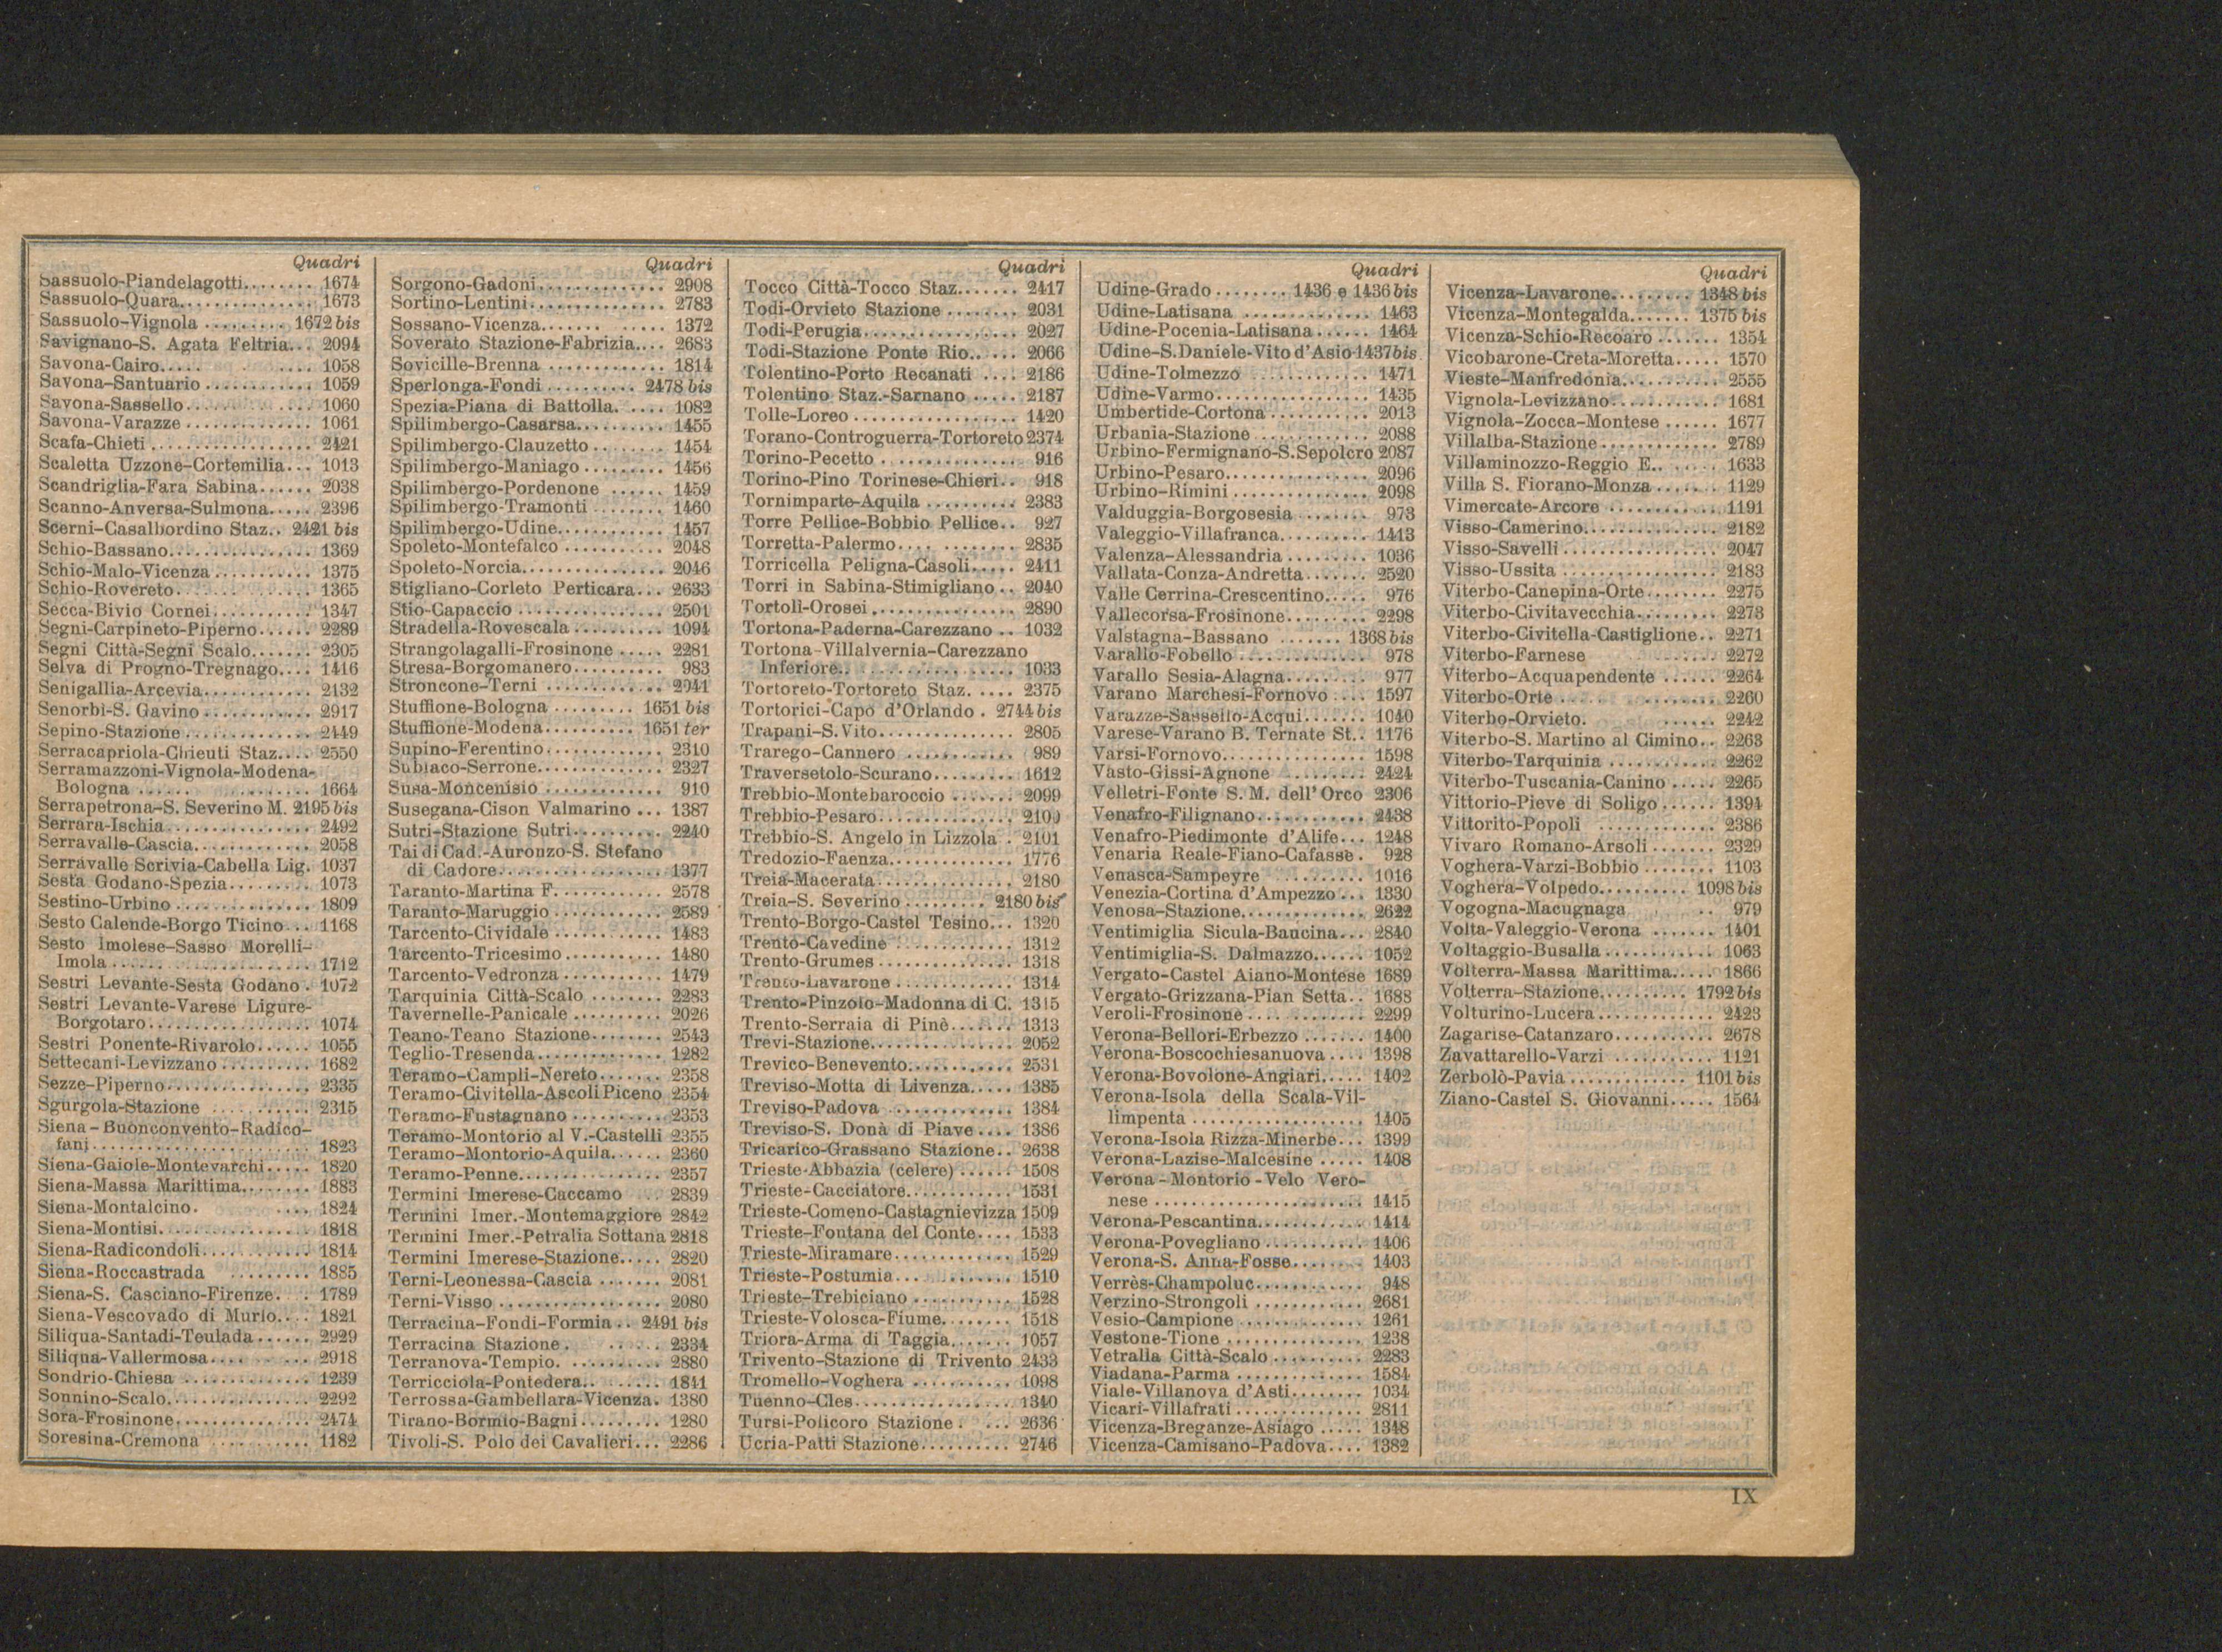 Quadri
Sassuolo-Piandelagotti........ 1674
Sassuolo-Quara............... 1673
Sassuolo-Vignola ......... 1672 bis
Savignano-S. Agata Feltria... 2094
Savona-Cairo..... ..... 1058
Savona-Santuario ............ 1059
Savona-Sassello.............. 1060
Savona-Varazze .............. 1061
Scafa-Chieti ................. 2421
Scaletta Uzzone-Cortemilia... 1013
Scandriglia-Fara Sabina...... 2038
Scanno-Anversa-Sulmona..... 2396
Scerni-Casalbordino Staz.. 2421 bis
Schio-Bassano................ 1369
Schio-Malo-Vicenza........... 1375
Schio-Rovereto............... 1365
Secca-Bivio Cornei........... 1347
Segni-Carpineto-Piperno...... 2289
Segni Città-Segni Scalo....... 2305
Selva di Progno-Tregnago.... 1416
Senigallia-Arcevia............ 2132
Senorbì-S. Gavino ............ 2917
Sepino-Stazione .............. 2449
Serracapriola-Chieuti Staz.... 2550
Serramazzoni-Vignola-Modena-
Bologna ...... ......... 1664
Serrapetrona-S. Severino M. 2195 bis
Serrara-Ischia................ 2492
Serravalle-Cascia............. 2058
Serravalle Scrivia-Cabella Lig. 1037
Sesta Godano-Spezia......... 1073
Sestino-Urbino ............... 1809
Sesto Calende-Borgo Ticino... 1168
Sesto Imolese-Sasso Morelli-
Imola ...................... 1712
Sestri Levante-Sesta Godano . 1072
Sestri Levante-Varese Ligure-
Borgotaro.................. 1074
Sestri Ponente-Rivarolo...... 1055
Settecani-Levizzano .......... 1682
Sezze-Piperno................ 2335
Sgurgola-Stazione ........... 2315
Siena-Buonconvento-Radico-
fani ........................ 1823
Siena-Gaiole-Montevarchi..... 1820
Siena-Massa Marittima........ 1883
Siena-Montalcino. .... 1824
Siena-Montisi................. 1818
Siena-Radicondoli............ 1814
Siena-Roccastrada ......... 1885
Siena-S. Casciano-Firenze. . . 1789
Siena-Vescovado di Murlo.... 1821
Siliqua-Santadi-Teulada...... 2929
Siliqua-Vallermosa.... ... 2918
Sondrio-Chiesa .............. 1239
Sonnino-Scalo................ 2292
Sora-Frosinone............... 2474
Soresina-Cremona ........... 1182
Quadri
Sorgono-Gadoni.............. 2908
Sortino-Lentini............... 2783
Sossano-Vicenza....... ..... 1372
Soverato Stazione-Fabrizia.... 2683
Sovicille-Brenna ............. 1814
Sperlonga-Fondi .......... 2478 bis
Spezia-Piana di Battolla. .... 1082
Spilimbergo-Casarsa.......... 1455
Spilimbergo-Clauzetto ........ 1454
Spilimbergo-Maniago ......... 1456
Spilimbergo-Pordenone ...... 1459
Spilimbergo-Tramonti ........ 1460
Spilimbergo-Udine............ 1457
Spoleto-Montefalco ........... 2048
Spoleto-Norcia................ 2046
Stigliano-Corleto Perticara... 2633
Stio-Capaccio ................ 2501
Stradella-Rovescala .......... 1094
Strangolagalli-Frosinone ..... 2281
Stresa-Borgomanero.......... 983
Stroncone-Terni ............. 2941
Stuffione-Bologna ......... 1651 bis
Stuffione-Modena.......... 1651 ter
Supino-Ferentino............. 2310
Subiaco-Serrone.............. 2327
Susa-Moncenisio ............. 910
Susegana-Cison Valmarino ... 1387
Sutri-Stazione Sutri.......... 2240
Tai di Cad.-Auronzo-S. Stefano
di Cadore.................. 1377
Taranto-Martina F............ 2578
Taranto-Maruggio ............ 2589
Tarcento-Cividale ............ 1483
Tarcento-Tricesimo ........... 1480
Tarcento-Vedronza ........... 1479
Tarquinia Città-Scalo ........ 2283
Tavernelle-Panicale .......... 2026
Teano-Teano Stazione........ 2543
Teglio-Tresenda.............. 1282
Teramo-Campli-Nereto....... 2358
Teramo-Civitella-Ascoli Piceno 2354
Teramo-Fustagnano .......... 2353
Teramo-Montorio al V.-Castelli 2355
Teramo-Montorio-Aquila...... 2360
Teramo-Penne................ 2357
Termini Imerese-Caccamo ... 2839
Termini Imer.-Montemaggiore 2842
Termini Imer.-Petralia Sottana 2818
Termini Imerese-Stazione..... 2820
Terni-Leonessa-Cascia ....... 2081
Terni-Visso .................. 2080
Terracina-Fondi-Formia .. 2491 bis
Terracina Stazione. ..... 2334
Terranova-Tempio. .......... 2880
Terricciola-Pontedera.. ...... 1841
Terrossa-Gambellara-Vicenza. 1380
Tirano-Bormio-Bagni......... 1280
Tivoli-S. Polo dei Cavalieri... 2286
Quadri
Tocco Città-Tocco Staz....... 2417
Todi-Orvieto Stazione ........ 2031
Todi-Perugia................. 2027
Todi-Stazione Ponte Rio.. ... 2066
Tolentino-Porto Recanati .... 2186
Tolentino Staz.-Sarnano ..... 2187
Tolle-Loreo .................. 1420
Torano-Controguerra-Tortoreto 2374
Torino-Pecetto . ............. 916
Torino-Pino Torinese-Chieri.. 918
Tornimparte-Aquila .......... 2383
Torre Pellice-Bobbio Pellice.. 927
Torretta-Palermo.... ........ 2835
Torricella Peligna-Casoli..... 2411
Torri in Sabina-Stimigliano .. 2040
Tortolì-Orosei ................ 2890
Tortona-Paderna-Carezzano .. 1032
Tortona-Villalvernia-Carezzano
Inferiore.. ................. 1033
Tortoreto-Tortoreto Staz. .... 2375
Tortorici-Capo d'Orlando . 2744 bis
Trapani-S. Vito............... 2805
Trarego-Cannero ............ 989
Traversetolo-Scurano......... 1612
Trebbio-Montebaroccio ....... 2099
Trebbio-Pesaro............... 2100
Trebbio-S. Angelo in Lizzola . 2101
Tredozio-Faenza.............. 1776
Treia-Macerata............... 2180
Treia-S. Severino ......... 2180 bis
Trento-Borgo-Castel Tesino... 1320
Trento-Cavedine ............. 1312
Trento-Grumes ............... 1318
Trento-Lavarone ............. 1314
Trento-Pinzolo-Madonna di C. 1315
Trento-Serraia di Pinè....... 1313
Trevi-Stazione................ 2052
Trevico-Benevento............ 2531
Treviso-Motta di Livenza..... 1385
Treviso-Padova .............. 1384
Treviso-S. Donà di Piave .... 1386
Tricarico-Grassano Stazione.. 2638
Trieste-Abbazia (celere) ...... 1508
Trieste-Cacciatore............ 1531
Trieste-Comeno-Castagnievizza 1509
Trieste-Fontana del Conte.... 1533
Trieste-Miramare............. 1529
Trieste-Postumia............. 1510
Trieste-Trebiciano ........... 1528
Trieste-Volosca-Fiume........ 1518
Triora-Arma di Taggia....... 1057
Trivento-Stazione di Trivento 2433
Tromello-Voghera ........... 1098
Tuenno-Cles.................. 1340
Tursi-Policoro Stazione. ... 2636
Ucria-Patti Stazione.......... 2746
Quadri
Udine-Grado ........ 1436 e 1436 bis
Udine-Latisana .............. 1463
Udine-Pocenia-Latisana...... 1464
Udine-S. Daniele-Vito d'Asio 1437 bis
Udine-Tolmezzo ............. 1471
Udine-Varmo................. 1435
Umbertide-Cortona ........... 2013
Urbania-Stazione ............ 2088
Urbino-Fermignano-S. Sepolcro 2087
Urbino-Pesaro................ 2096
Urbino-Rimini ............... 2098
Valduggia-Borgosesia ........ 973
Valeggio-Villafranca.......... 1413
Valenza-Alessandria ......... 1036
Vallata-Conza-Andretta....... 2520
Valle Cerrina-Crescentino..... 976
Vallecorsa-Frosinone......... 2298
Valstagna-Bassano ....... 1368 bis
Varallo-Fobello .............. 978
Varallo Sesia-Alagna......... 977
Varano Marchesi-Fornovo .... 1597
Varazze-Sassello-Acqui....... 1040
Varese-Varano B. Ternate St.. 1176
Varsi-Fornovo................ 1598
Vasto-Gissi-Agnone ......... 2424
Velletri-Fonte S. M. dell'Orco 2306
Venafro-Filignano............ 2438
Venafro-Piedimonte d'Alife... 1248
Venaria Reale-Fiano-Cafasse. 928
Venasca-Sampeyre .......... 1016
Venezia-Cortina d'Ampezzo ... 1330
Venosa-Stazione.............. 2622
Ventimiglia Sicula-Baucina... 2840
Ventimiglia-S. Dalmazzo...... 1052
Vergato-Castel Aiano-Montese 1689
Vergato-Grizzana-Pian Setta.. 1688
Veroli-Frosinone .... ........ 2299
Verona-Bellori-Erbezzo ....... 1400
Verona-Boscochiesanuova .... 1398
Verona-Bovolone-Angiari..... 1402
Verona-Isola della Scala-Vil-
limpenta ................... 1405
Verona-Isola Rizza-Minerbe... 1399
Verona-Lazise-Malcesine ..... 1408
Verona-Montorio-Velo Vero-
nese ....................... 1415
Verona-Pescantina............ 1414
Verona-Povegliano ........... 1406
Verona-S. Anna-Fosse........ 1403
Verrès-Champoluc............ 948
Verzino-Strongoli ............ 2681
Vesio-Campione .............. 1261
Vestone-Tione ............... 1238
Vetralla Città-Scalo .......... 2283
Viadana-Parma .............. 1584
Viale-Villanova d'Asti........ 1034
Vicari-Villafrati .............. 2811
Vicenza-Breganze-Asiago ..... 1348
Vicenza-Camisano-Padova.... 1382
Quadri
Vicenza-Lavarone......... 1348 bis
Vicenza-Montegalda....... 1375 bis
Vicenza-Schio-Recoaro ....... 1354
Vicobarone-Creta-Moretta..... 1570
Vieste-Manfredonia........... 2555
Vignola-Levizzano............ 1681
Vignola-Zocca-Montese ...... 1677
Villalba-Stazione ............. 2789
Villaminozzo-Reggio E.. ..... 1633
Villa S. Fiorano-Monza ....... 1129
Vimercate-Arcore ............ 1191
Visso-Camerino............... 2182
Visso-Savelli ................. 2047
Visso-Ussita ................. 2183
Viterbo-Canepina-Orte........ 2275
Viterbo-Civitavecchia......... 2273
Viterbo-Civitella-Castiglione.. 2271
Viterbo-Farnese ....... 2272
Viterbo-Acquapendente ...... 2264
Viterbo-Orte ................. 2260
Viterbo-Orvieto. ...... 2242
Viterbo-S. Martino al Cimino.. 2263
Viterbo-Tarquinia ............ 2262
Viterbo-Tuscania-Canino ..... 2265
Vittorio-Pieve di Soligo ...... 1394
Vittorito-Popoli ............. 2386
Vivaro Romano-Arsoli ....... 2329
Voghera-Varzi-Bobbio ........ 1103
Voghera-Volpedo.......... 1098 bis
Vogogna-Macugnaga .. 979
Volta-Valeggio-Verona ....... 1401
Voltaggio-Busalla ............ 1063
Volterra-Massa Marittima..... 1866
Volterra-Stazione.......... 1792 bis
Volturino-Lucera ............. 2423
Zagarise-Catanzaro........... 2678
Zavattarello-Varzi ........... 1121
Zerbolò-Pavia ............. 1101 bis
Ziano-Castel S. Giovanni..... 1564
IX